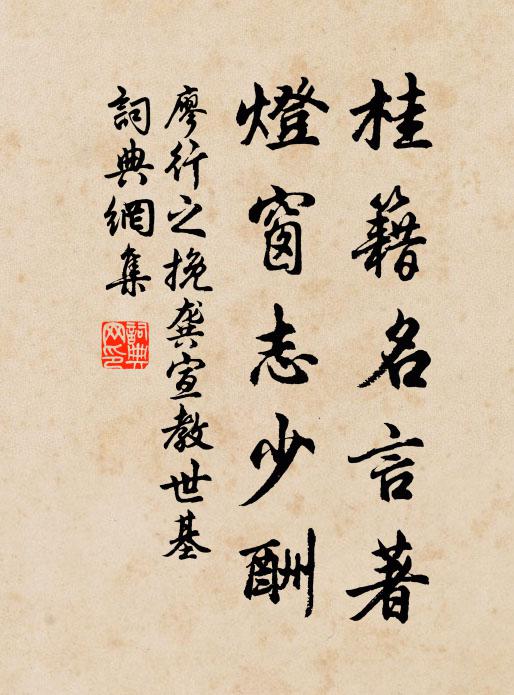 桂籍名言著
燈窗志少酬
廖行之挽龚宣教世基
詞典網集
詞典網印